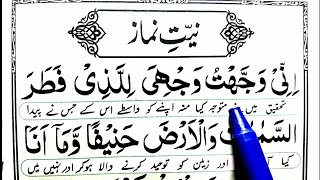 نیتِ نماز
اِنِّیْ وَجَّهْتُ وَجْهِیَ لِلَّذِیْ فَطَرَ
تحقیق میں نے متوجہ کیا منہ اپنے کو واسطے اس کے جس نے پیدا
السَّمٰوٰتِ وَالْاَرْضَ حَنِیْفًا وَّمَآ اَنَا
کیا اور زمین کو توحید کرنے والا ہوکر اور نہیں میں